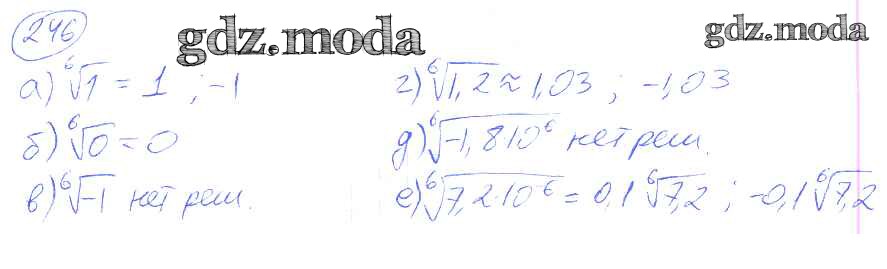 246
gdz.moda
gdz.moda
а) ⁶√1 = 1 ; -1
б) ⁶√0 = 0
в) ⁶√-1 нет реш.
г) ⁶√1,2 ≈ 1,03 ; -1,03
д) ⁶√-1,8·10⁶ нет реш.
е) ⁶√7,2·10⁻⁶ = 0,1 ⁶√7,2 ; -0,1 ⁶√7,2